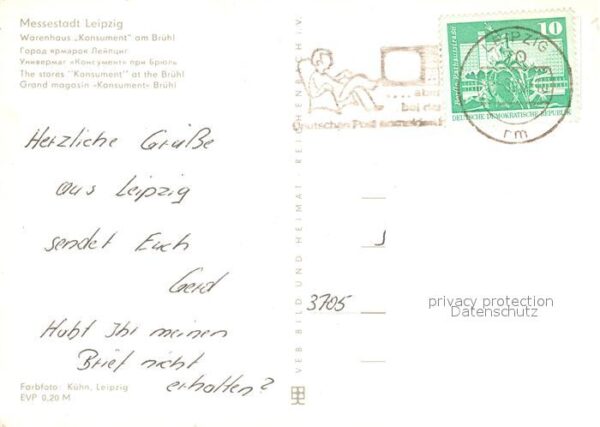 Messestadt Leipzig
Warenhaus „Konsument" am Brühl
Город ярмарок Лейпциг
Универмаг «Консумент» при Брюле
The stores "Konsument" at the Brühl
Grand magasin «Konsument» Brühl
Herzliche Grüße
aus Leipzig
sendet Euch
Gerd
Habt Ihr meinen
Brief nicht
erhalten?
Farbfoto: Kühn, Leipzig
EVP 0,20 M
VEB BILD UND HEIMAT · REICHENBACH I. V.
.... aber
bei der
Deutschen Post anmelden!
LEIPZIG
rm
10
DEUTSCHE DEMOKRATISCHE REPUBLIK
3705
privacy protection
Datenschutz